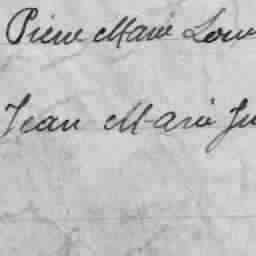 Pierre Marie Loui
Jean Marie Ju